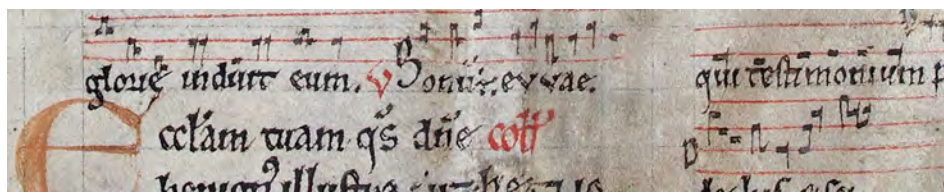 gloriē induit eum. v Bonū:. evvae.
Ecclām tuam qs dn̄e coll̄
benign⁹ illustra ut beati io
qui testimonium p